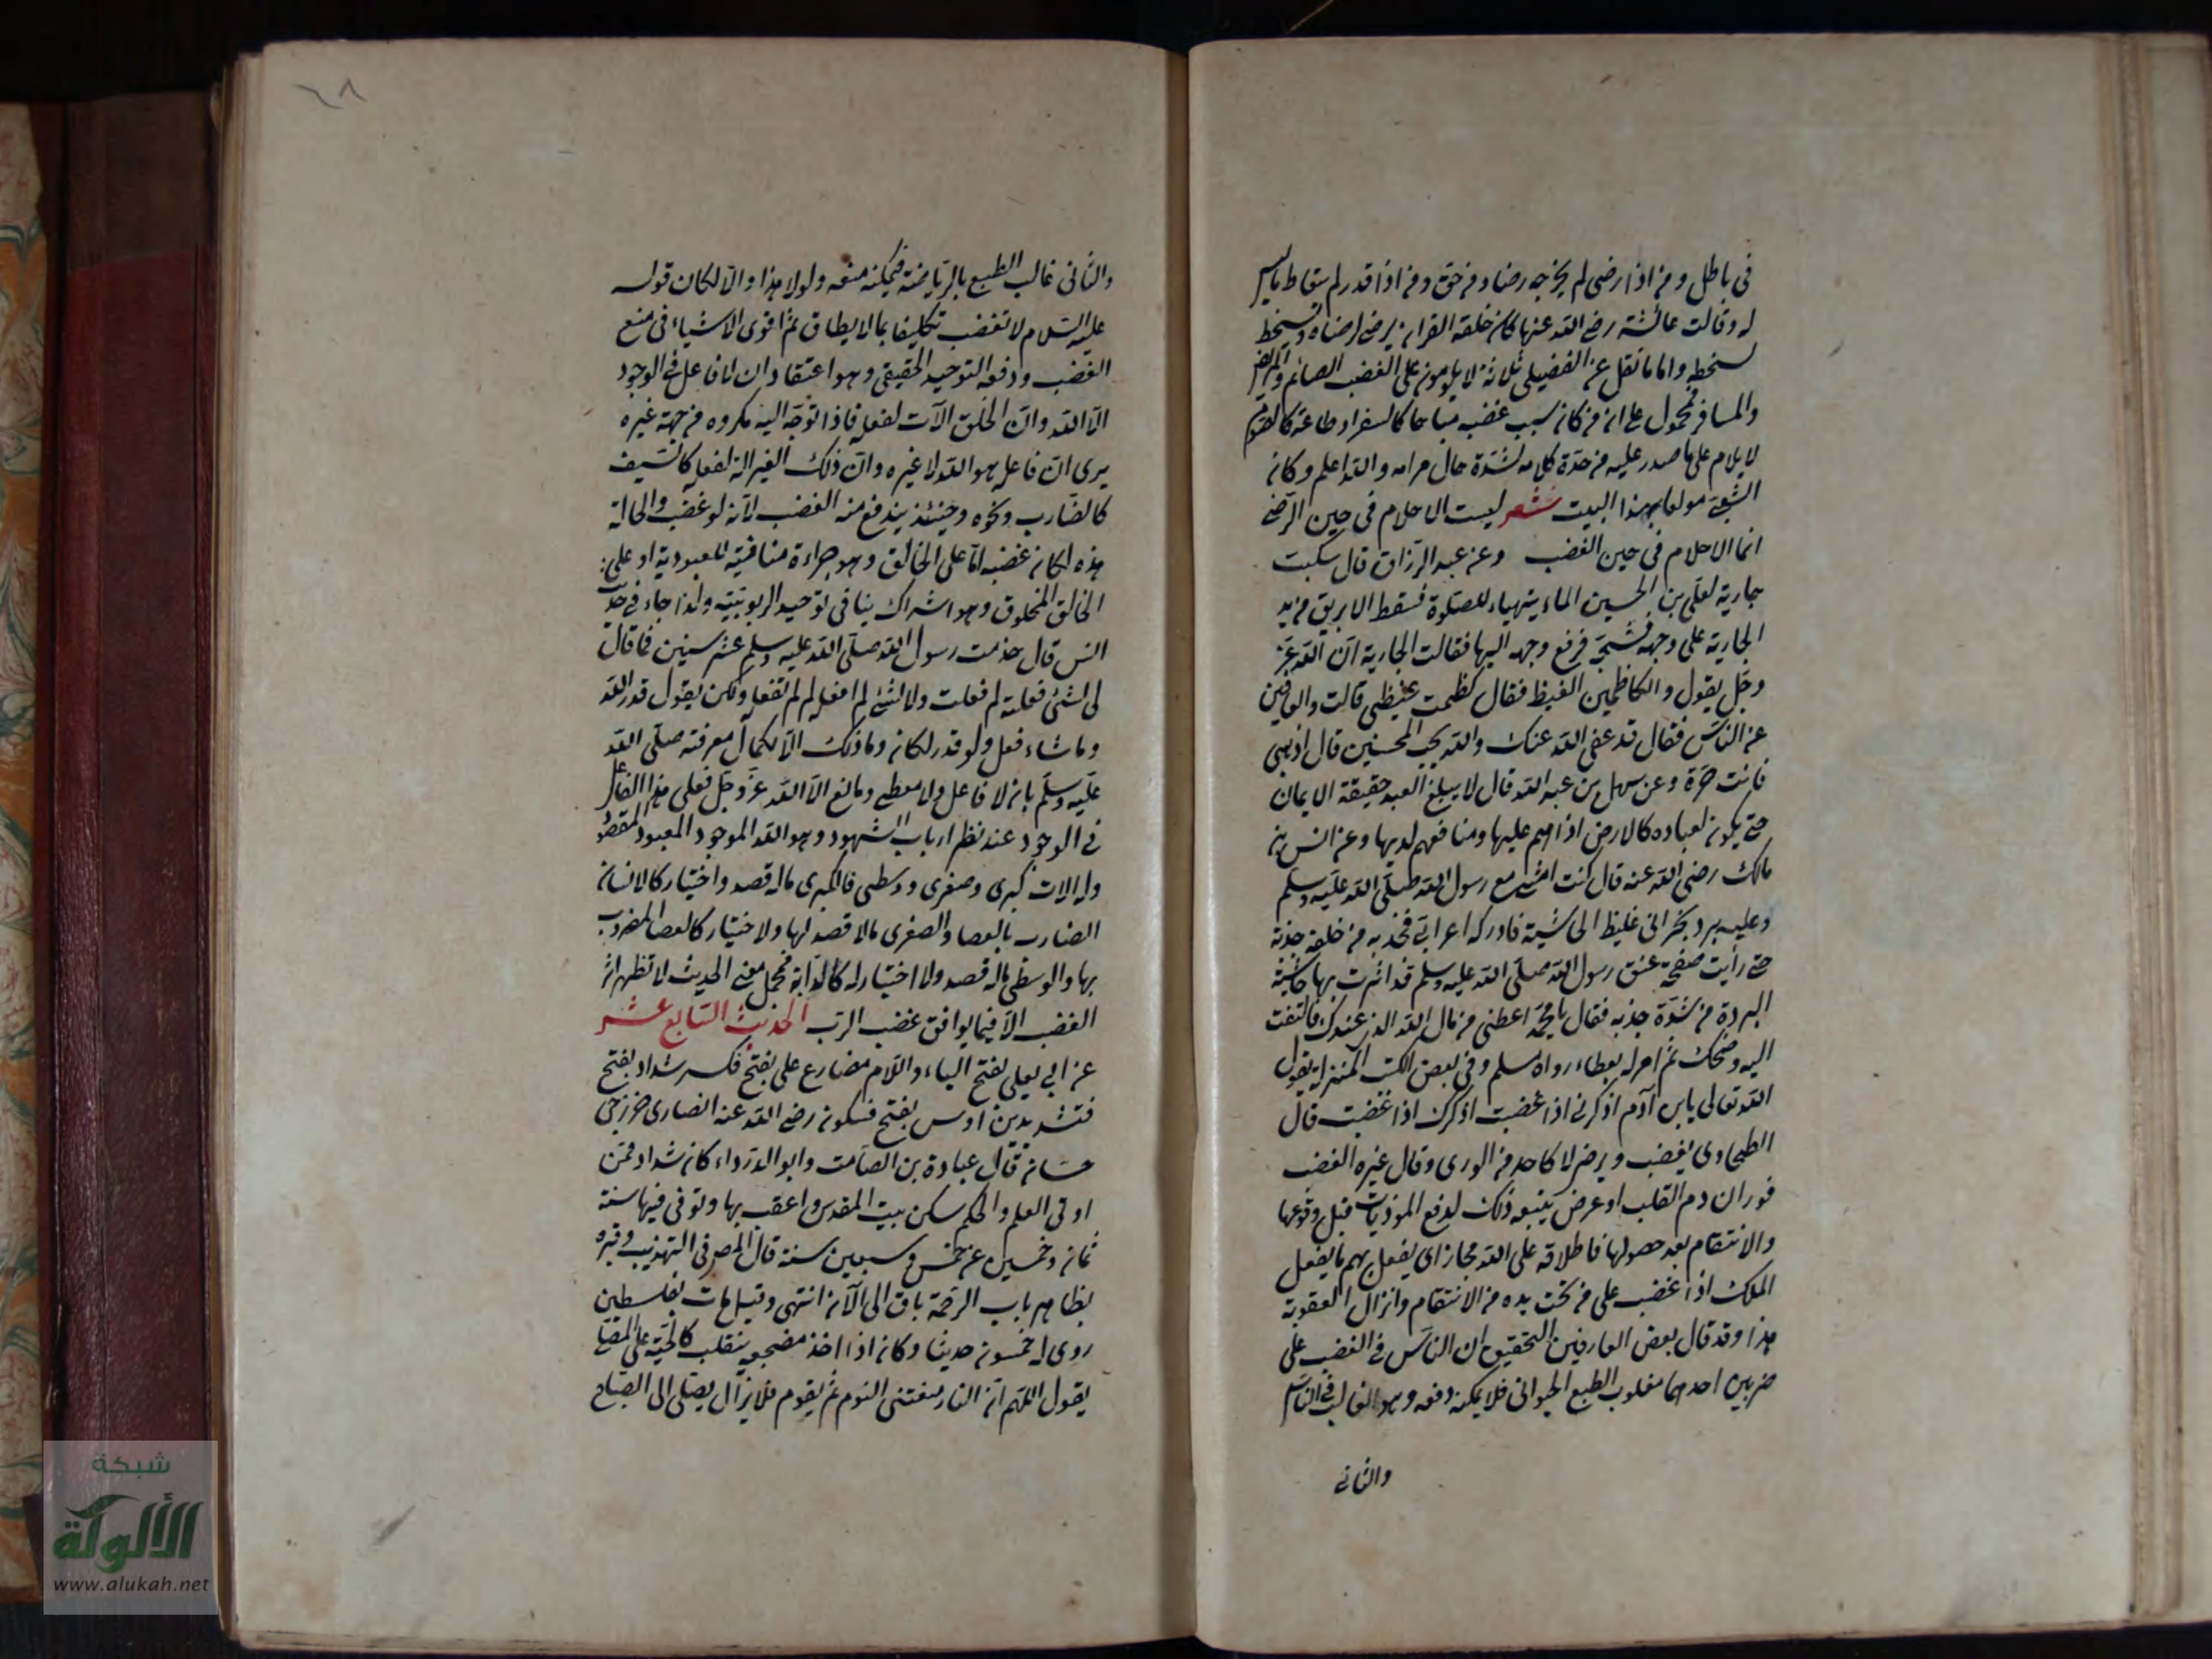 في باطل ومن اذا رضى لم يخرجه رضاه من حق ومن اذا قدر لم يتعاط ما ليس
له وقالت عائشة رضي الله عنها كان خلقه القران يرضى لرضاه ويسخط
لسخطه واما ما نقل عن الفضيل ثلاثة لا يلامون على الغضب الصائم والمريض
والمسافر فمحمول على ان من كان سبب غضبه مباحا كالسفر او طاعة كالصوم
لا يلام على ما صدر عليه من حدة كلامه لشدة حال مرامه والله اعلم وكان
الشعبي مولعا بهذا البيت شعر ليست الاحلام في حين الرضى
انما الاحلام في حين الغضب وعن عبد الرزاق قال سكبت
جارية لعلي بن الحسين الماء يتهياء للصلوة فسقط الابريق من يد
الجارية على وجهه فشجه فرفع وجهه اليها فقالت الجارية ان الله عز
وجل يقول والكاظمين الغيظ فقال كظمت غيظي قالت والعافين
عن الناس فقال قد عفى الله عنك والله يحب المحسنين قال اذهبي
فانت حرة وعن سهل بن عبد الله قال لا يبلغ العبد حقيقة الايمان
حتى يكون لعباده كالارض اذاهم عليها ومنافعهم لديها وعن انس بن
مالك رضي الله عنه قال كنت امشي مع رسول الله صلى الله عليه وسلم
وعليه برد نجراني غليظ الحاشية فادركه اعرابي فجذبه من خلفه جذبة
حتى رأيت صفحة عنق رسول الله صلى الله عليه وسلم قد اثرت بها حاشية
البردة من شدة جذبه فقال يا محمد اعطني من مال الله الذي عندك فالتفت
اليه وضحك ثم امر له بعطاء رواه مسلم وفي بعض الكتب المنزلة يقول
الله تعالى يا بن آدم اذكرني اذا غضبت اذكرك اذا غضبت قال
الطحاوي يغضب ويرضى لا كاحد من الورى وقال غيره الغضب
فوران دم القلب او عرض يتبعه ذلك لدفع الموذيات قبل وقوعها
والانتقام بعد حصولها فاطلاقه على الله مجاز اي يفعل بهم ما يفعل
الملك اذا غضب على من تحت يده من الانتقام وانزال العقوبة
هذا وقد قال بعض العارفين التحقيق ان الناس في الغضب على
ضربين احدهما مغلوب الطبع الحيواني فلا يمكنه دفعه وهو الغالب في الناس
والثاني
والثاني غالب الطبع بالرياضة فيمكنه منعه ولولا هذا والا لكان قوله
عليه السلام لا تغضب تكليفا بما لا يطاق ثم اقوى الاشياء في منع
الغضب ودفعه التوحيد الحقيقي وهو اعتقاد ان لا فاعل في الوجود
الا الله وان الخلق الآت لفعله فاذا توجه اليه مكروه من جهة غيره
يرى ان فاعله هو الله لا غيره وان ذلك الغير آلة لفعله كالسيف
كالضارب ونحوه وحينئذ يندفع منه الغضب لانه لو غضب والحالة
هذه لكان غضبه اما على الخالق وهو جراءة منافية للعبودية او على
الخالق المخلوق وهو اشراك ينافي توحيد الربوبية ولذا جاء في حديث
انس قال خدمت رسول الله صلى الله عليه وسلم عشر سنين فما قال
لي لشئ فعلته لم فعلت ولا لشئ لم افعله لم لم تفعله ولكن يقول قدر الله
وما شاء فعل ولو قدر لكان وما ذلك الا لكمال معرفته صلى الله
عليه وسلم بان لا فاعل ولا معطي ومانع الا الله عز وجل فعلى هذا الفاعل
في الوجود عند نظر ارباب الشهود وهو الله الموجود المعبود المقصود
وله الات كبرى وصغرى ووسطى فالكبرى ماله قصد واختيار كالانسان
الضارب بالعصا والصغرى مالا قصد لها ولا اختيار كالعصا المضروب
بها والوسطى ماله قصد ولا اختيار له كالدابة فمجمل معنى الحديث لا تظهر اثر
الغضب الا فيما يوافق غضب الرب الحديث السابع عشر
عن ابي يعلى بفتح الياء واللام مضارع على بفتح فكسر شداد بفتح
فتشديد بن اوس بفتح فسكون رضي الله عنه انصاري خزرجي
حسان قال عبادة بن الصامت وابو الدرداء كان شداد فمن
اوتي العلم والحكم سكن بيت المقدس واعقب بها وتوفي فيها سنة
ثمان وخمسين عن خمس وسبعين سنة قال المص في التهذيب وقبره
بظاهر باب الرحمة باق الى الآن انتهى وقيل مات بفلسطين
روى له خمسون حديثا وكان اذا اخذ مضجعه يتقلب كالحية على المقلى
يقول اللهم ان النار منعتني النوم ثم يقوم فلا يزال يصلي الى الصباح
شبكة
الألوكة
www.alukah.net